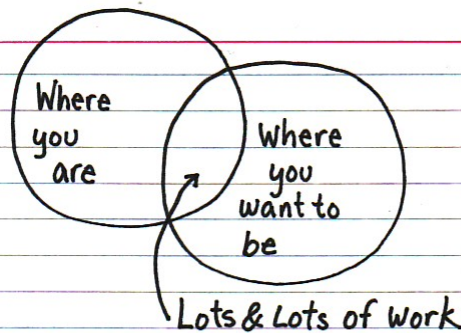 Where
you
are
Where
you
want to
be
Lots & Lots of work